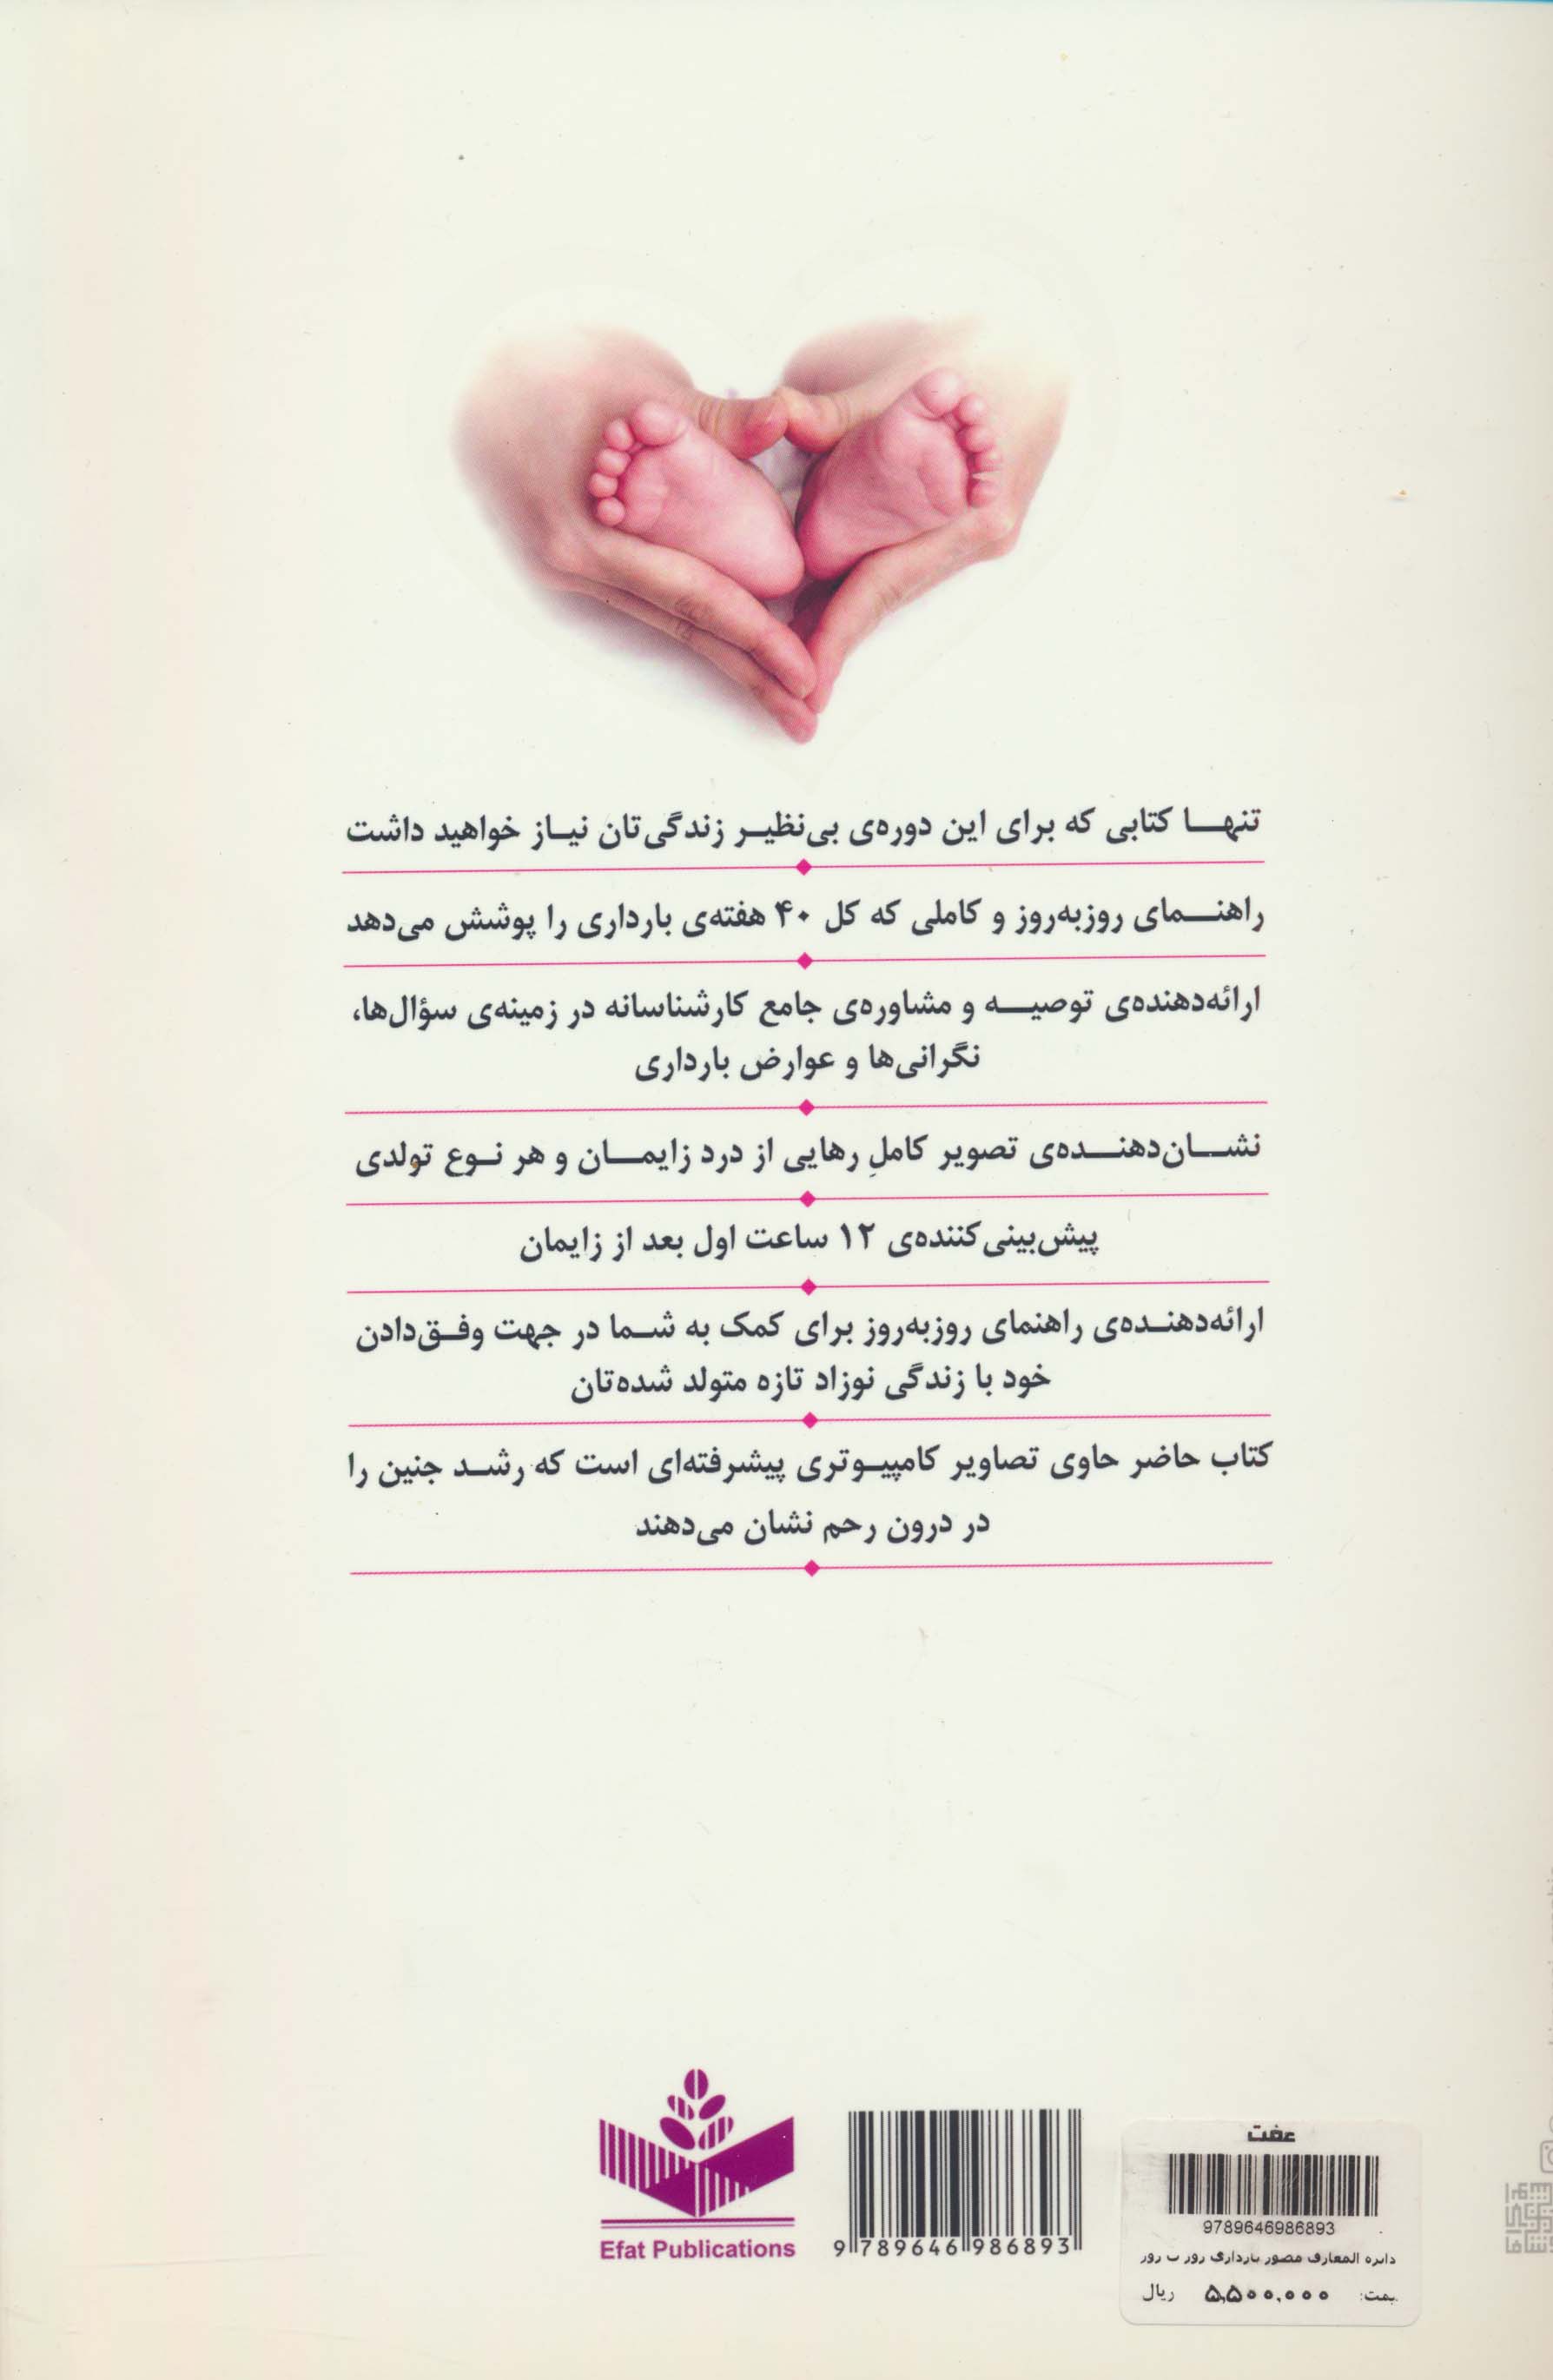 تنها کتابی که برای این دوره‌ی بی‌نظیر زندگی‌تان نیاز خواهید داشت
راهنمای روزبه‌روز و کاملی که کل ۴۰ هفته‌ی بارداری را پوشش می‌دهد
ارائه‌دهنده‌ی توصیه و مشاوره‌ی جامع کارشناسانه در زمینه‌ی سؤال‌ها،
نگرانی‌ها و عوارض بارداری
نشان‌دهنده‌ی تصویر کاملِ رهایی از درد زایمان و هر نوع تولدی
پیش‌بینی‌کننده‌ی ۱۲ ساعت اول بعد از زایمان
ارائه‌دهنده‌ی راهنمای روزبه‌روز برای کمک به شما در جهت وفق‌دادن
خود با زندگی نوزاد تازه متولد شده‌تان
کتاب حاضر حاوی تصاویر کامپیوتری پیشرفته‌ای است که رشد جنین را
در درون رحم نشان می‌دهند
Efat Publications
9 789646 986893
عفت
9789646986893
دایره المعارف مصور بارداری روز ب روز
قیمت: ۵,۵۰۰,۰۰۰ ریال